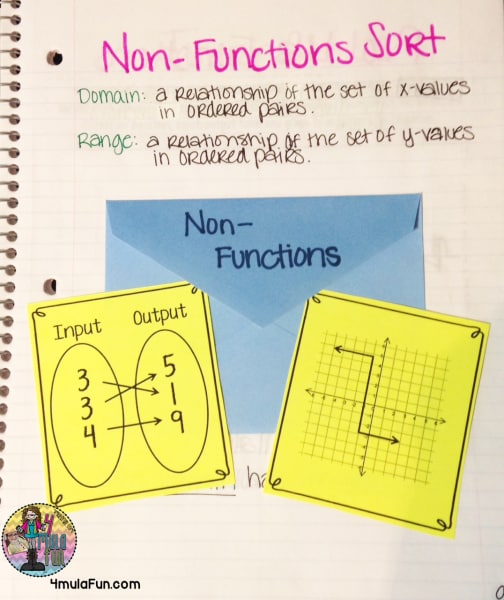 Non-Functions Sort
Domain: a relationship of the set of x-values
in ordered pairs.
Range: a relationship of the set of y-values
in ordered pairs.
Non-
Functions
Input Output
3 5
3 1
4 9
ha
4mulaFun.com